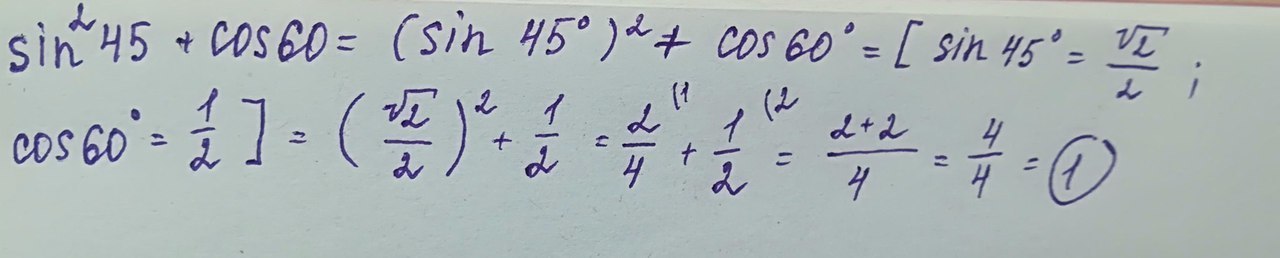 sin²45 + cos60 = (sin 45°)² + cos60° = [ sin 45° = √2/2 ;
cos60° = 1/2 ] = (√2/2)² + 1/2 = 2/4 (1 + 1/2 (2 = 2+2/4 = 4/4 = 1